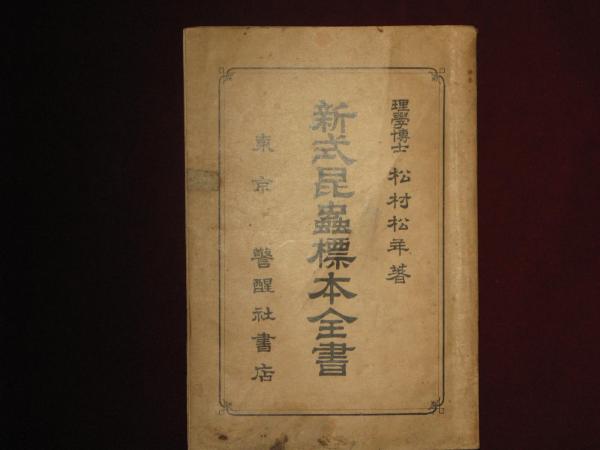 理學博士 松村松年著
新式昆蟲標本全書
東京 警醒社書店